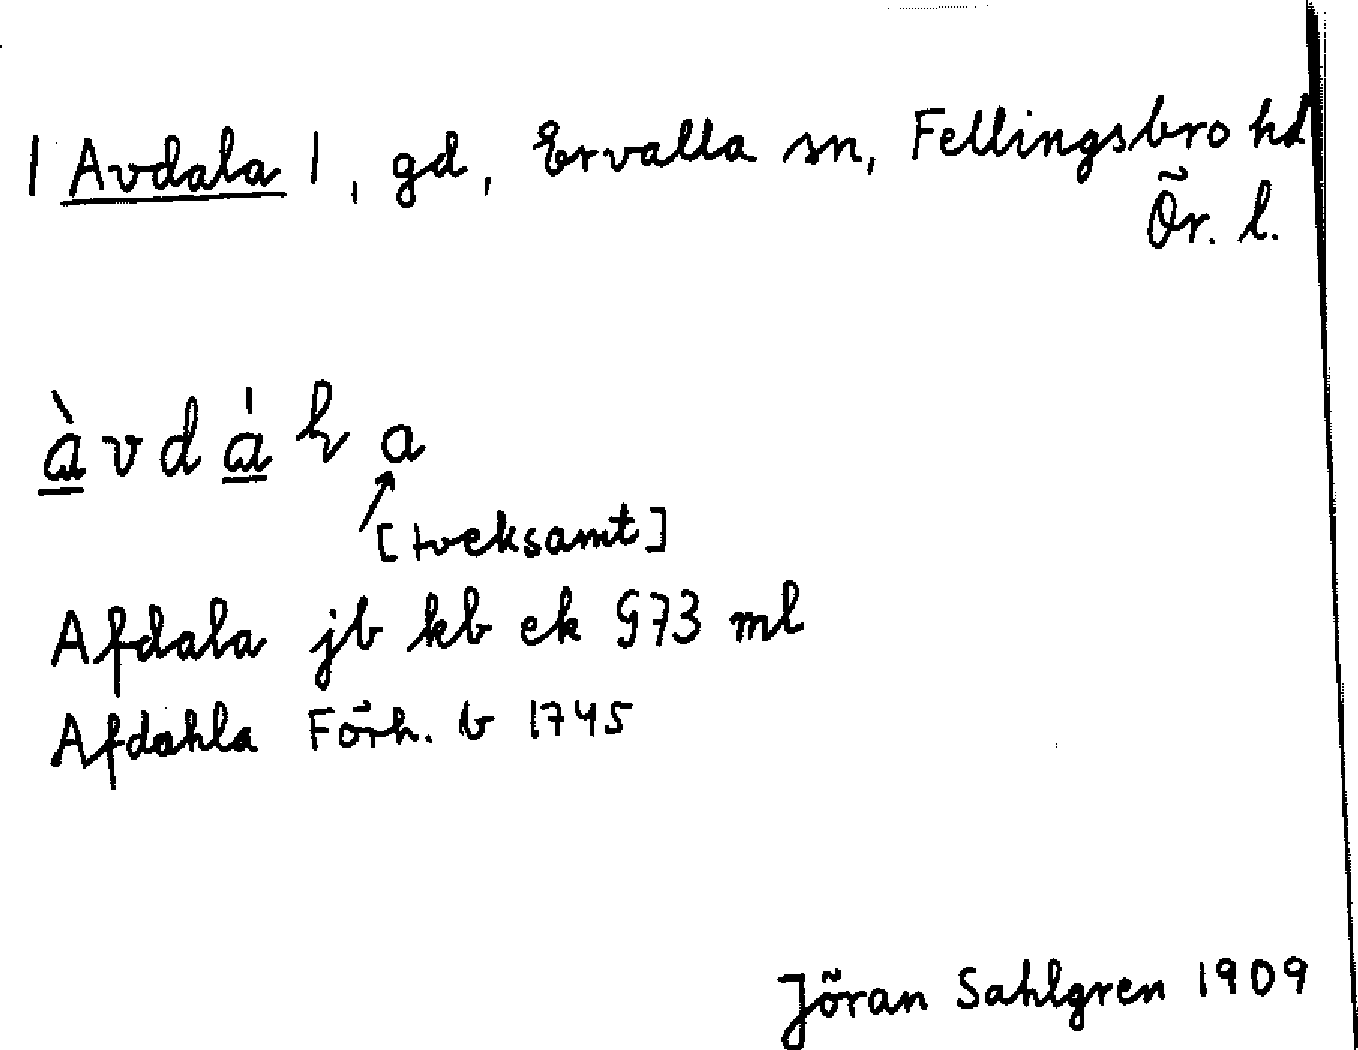 | Avdala |, gd, Ervalla sn, Fellingsbro hd
Ör. l.
àvdála
[tveksamt]
Afdala jb kb ek G73 ml
Afdahla Förh. b 1745
Jöran Sahlgren 1909